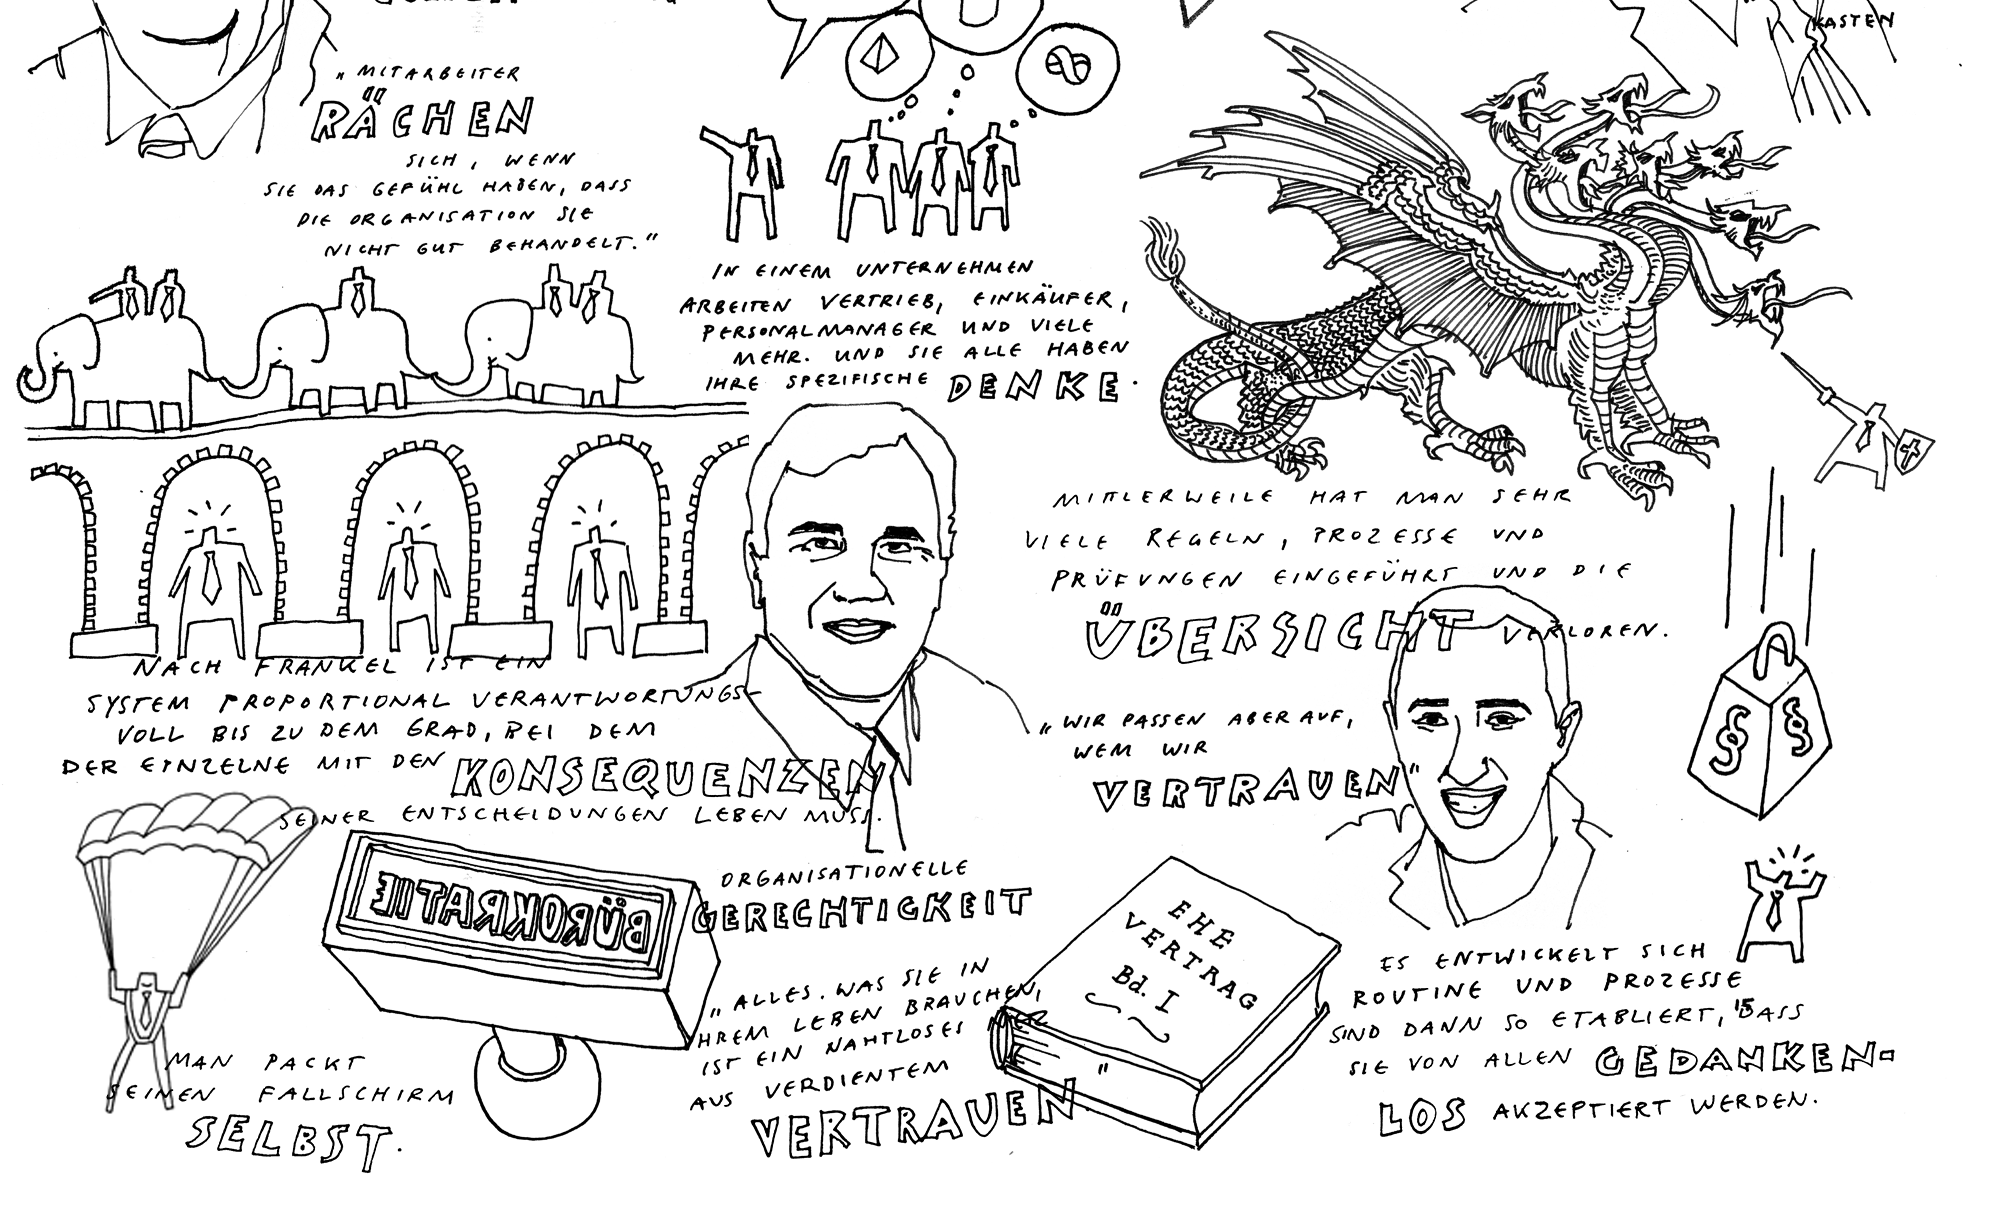 KASTEN
„MITARBEITER
RÄCHEN
SICH, WENN
SIE DAS GEFÜHL HABEN, DASS
DIE ORGANISATION SIE
NICHT GUT BEHANDELT.“
IN EINEM UNTERNEHMEN
ARBEITEN VERTRIEB, EINKÄUFER,
PERSONALMANAGER UND VIELE
MEHR. UND SIE ALLE HABEN
IHRE SPEZIFISCHE DENKE.
MITTLERWEILE HAT MAN SEHR
VIELE REGELN, PROZESSE UND
PRÜFUNGEN EINGEFÜHRT UND DIE
ÜBERSICHT VERLOREN.
NACH FRANKEL IST EIN
SYSTEM PROPORTIONAL VERANTWORTUNGS-
VOLL BIS ZU DEM GRAD, BEI DEM
DER EINZELNE MIT DEN KONSEQUENZEN
SEINER ENTSCHEIDUNGEN LEBEN MUSS.
„WIR PASSEN ABER AUF,
WEM WIR
VERTRAUEN“
§ §
BÜROKRATIE
ORGANISATIONELLE
GERECHTIGKEIT
„ALLES, WAS SIE IN
IHREM LEBEN BRAUCHEN,
IST EIN NAHTLOSES
AUS VERDIENTEM
VERTRAUEN
"
EHE
VERTRAG
Bd. I
MAN PACKT
SEINEN FALLSCHIRM
SELBST.
ES ENTWICKELT SICH
ROUTINE UND PROZESSE
SIND DANN SO ETABLIERT, DASS
SIE VON ALLEN GEDANKEN-
LOS AKZEPTIERT WERDEN.